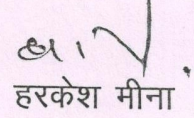 हरकेश मीना